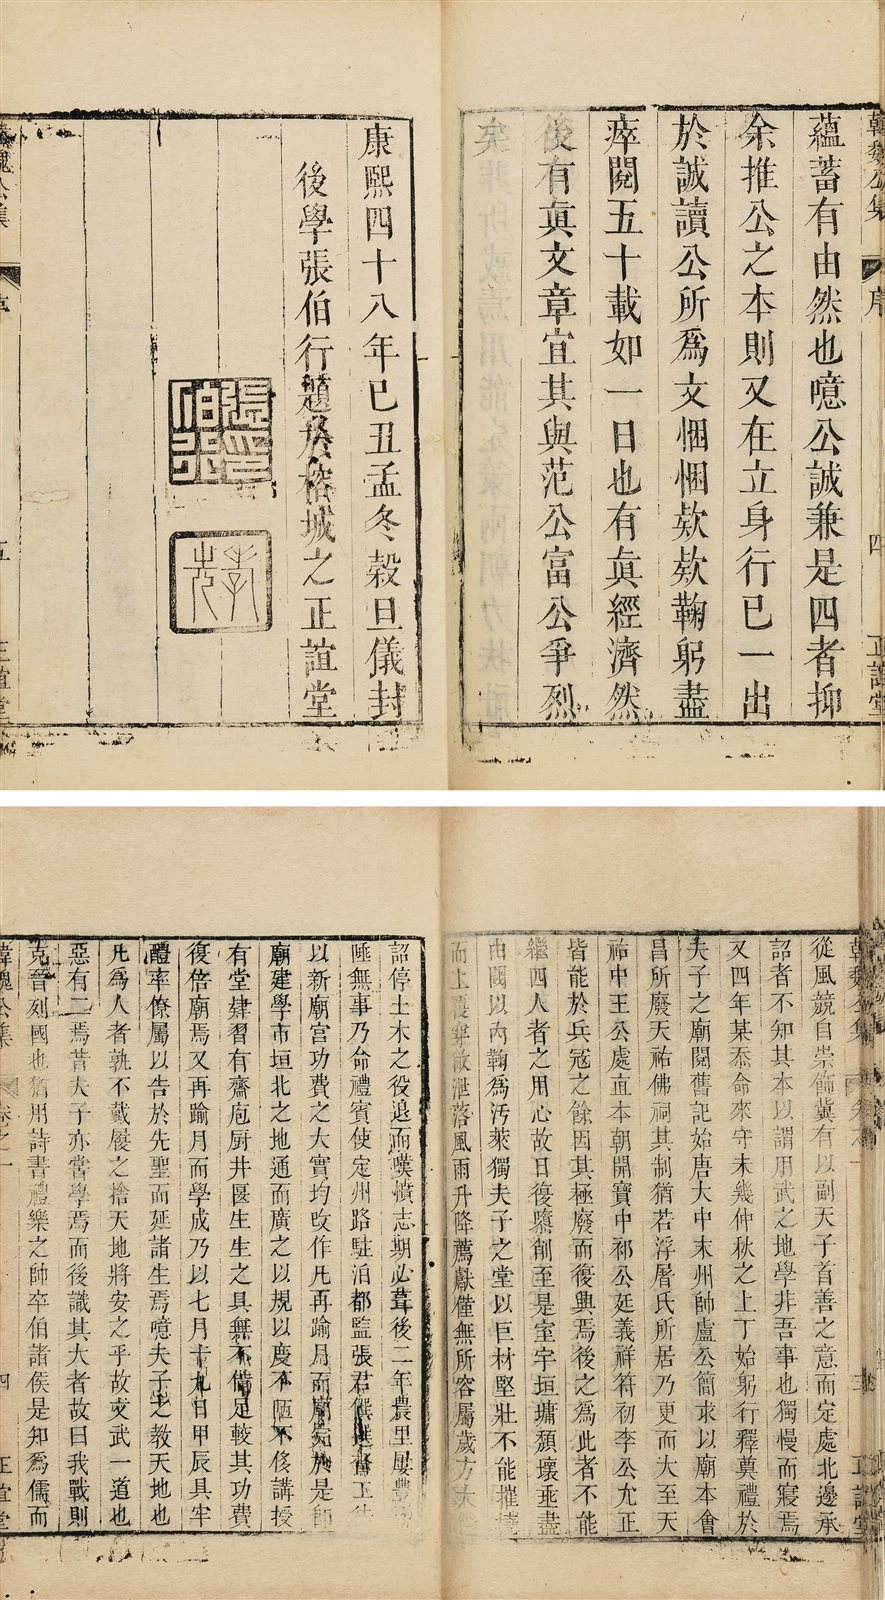 韓魏公集
序
四
正誼堂
蘊蓄有由然也噫公誠兼是四者抑
余推公之本則又在立身行已一出
於誠讀公所爲文悃悃欵欵鞠躬盡
瘁閱五十載如一日也有眞經濟然
後有眞文章宜其與范公富公爭烈
矣
康熙四十八年已丑孟冬穀旦儀封
後學張伯行題於榕城之正誼堂
張伯行印
孝先
魏公集
序
五
正誼堂
韓魏公集
正誼堂
從風競自崇飾冀有以副天子首善之意而定處北邊承
詔者不知其本以謂用武之地學非吾事也獨慢而寢焉
又四年某忝命來守未幾仲秋之上丁始躬行釋奠禮於
夫子之廟閱舊記始唐大中末州帥盧公簡求以廟本會
昌所廢天祐佛祠其制猶若浮屠氏所居乃更而大至天
祐中王公處直本朝開寶中祁公廷義祥符初李公允正
皆能於兵寇之餘因其極廢而復興焉後之爲此者不能
繼四人者之用心故日復隳削至是室宇垣墉頹壞垂盡
由閫以內鞠爲汚萊獨夫子之堂以巨材堅壯不能摧
而上覆穿敝泄落風雨升降薦獻僅無所容屬歲方大
詔停土木之役退而嘆憤志期必葺後二年農里屢豐
陲無事乃命禮賓使定州路駐泊都監張君僎選督工徒
以新廟宮功費之大實均改作凡再踰月而廟完於是卽
廟建學市垣北之地通而廣之以規以度不陋不侈講授
有堂肄習有齋庖厨井匽生生之具無不備足較其功費
復倍廟焉又再踰月而學成乃以七月十九日甲辰具牢
醴率僚屬以告於先聖而延諸生焉噫夫子之教天地也
凡爲人者孰不戴履之捨天地將安之乎故文武一道也
惡有二焉昔夫子亦嘗學焉而後識其大者故曰我戰則
克晉列國也猶用詩書禮樂之帥卒伯諸侯是知爲儒而
韓魏公集
卷之一
四
正誼堂